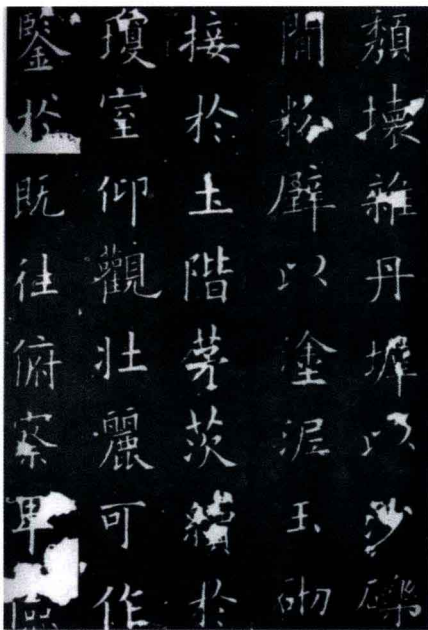 頹壞雜丹墀以沙礫
閒粉壁以塗泥玉砌
接於土階茅茨續於
瓊室仰觀壯麗可作
鑒於既往俯察卑儉